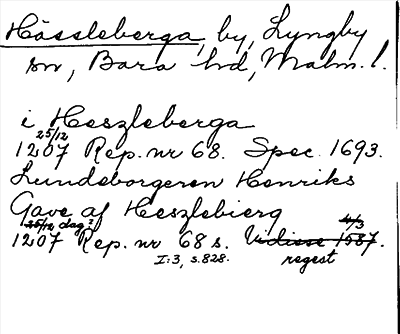 Hässleberga, by, Lyngby
sn, Bara hd, Malm. l.
i Heszleberga
25/12
1207 Rep. nr 68. Spec. 1693.
Lundeborgeren Henriks
Gave af Heszlebierg
25/12 dag? 4/3
1207 Rep. nr 68 s. Vidisse 1587.
I:3, s. 828. regest